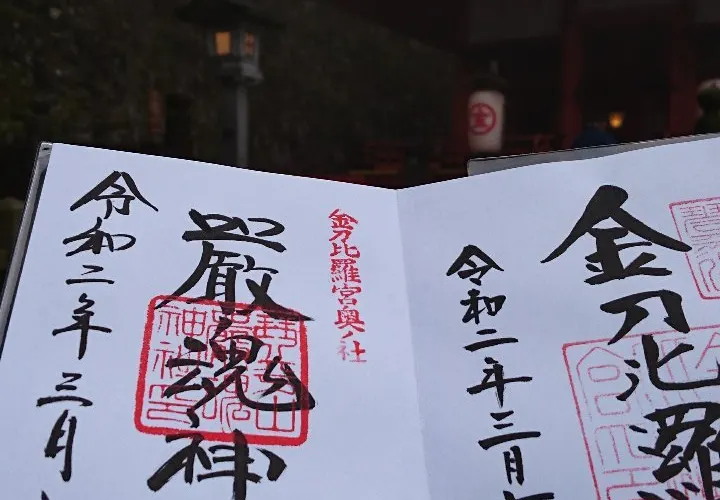 金刀比羅
令和二年三月
金刀比羅宮奥ノ社
嚴魂神
令和二年三月
金